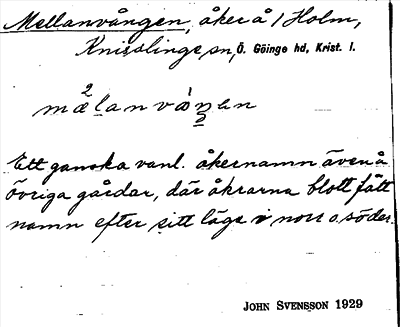 Mellanvången, åker å 1 Holm,
Knisslinge sn, Ö. Göinge hd, Krist. l.
2
mælanvåŋen
Ett ganska vanl. åkernamn även å
övriga gårdar, där åkrarna blott fått
namn efter sitt läge i norr o. söder.
JOHN SVENSSON 1929